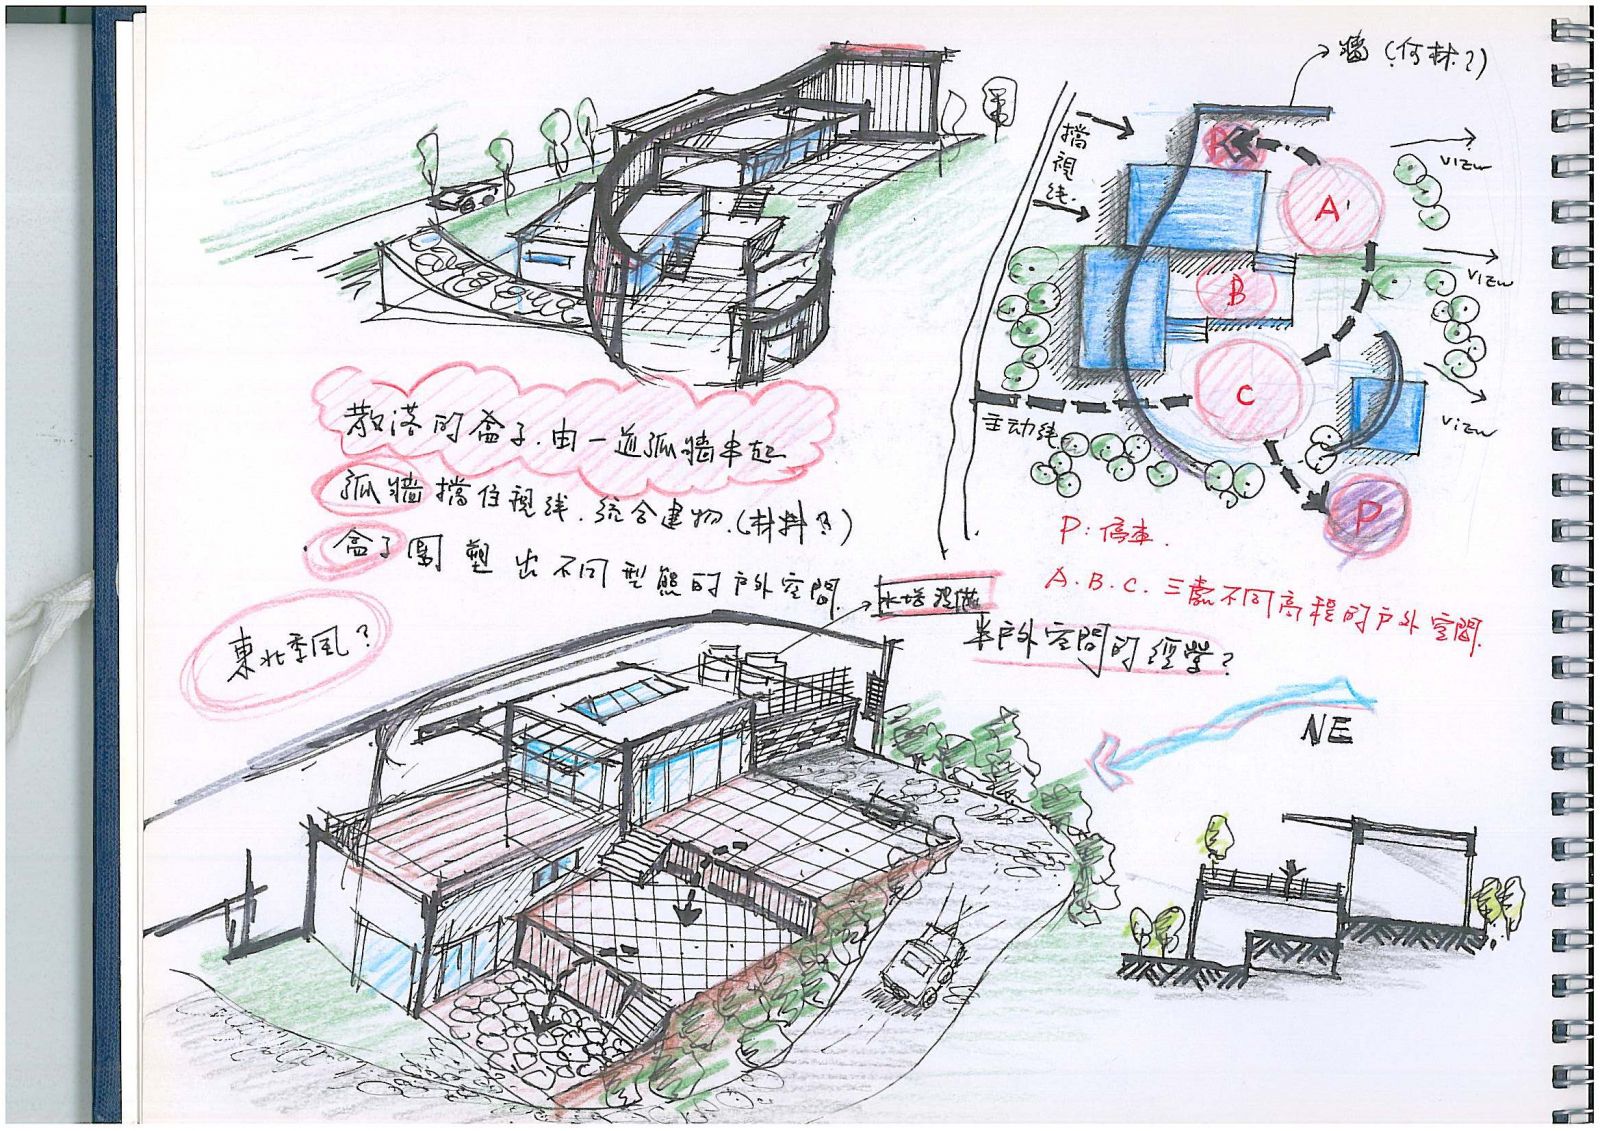 牆(何材?)
擋視线.
view
view
view
A
A'
B
C
主动线
P
P:停車.
A.B.C.三處不同高程的戶外空間.
散落的盒子.由一道弧牆串起
弧牆擋住視线.統合建物.(材料?)
盒子圍塑出不同型態的戶外空間.
水塔設備
東北季風?
半戶外空間的經營?
NE